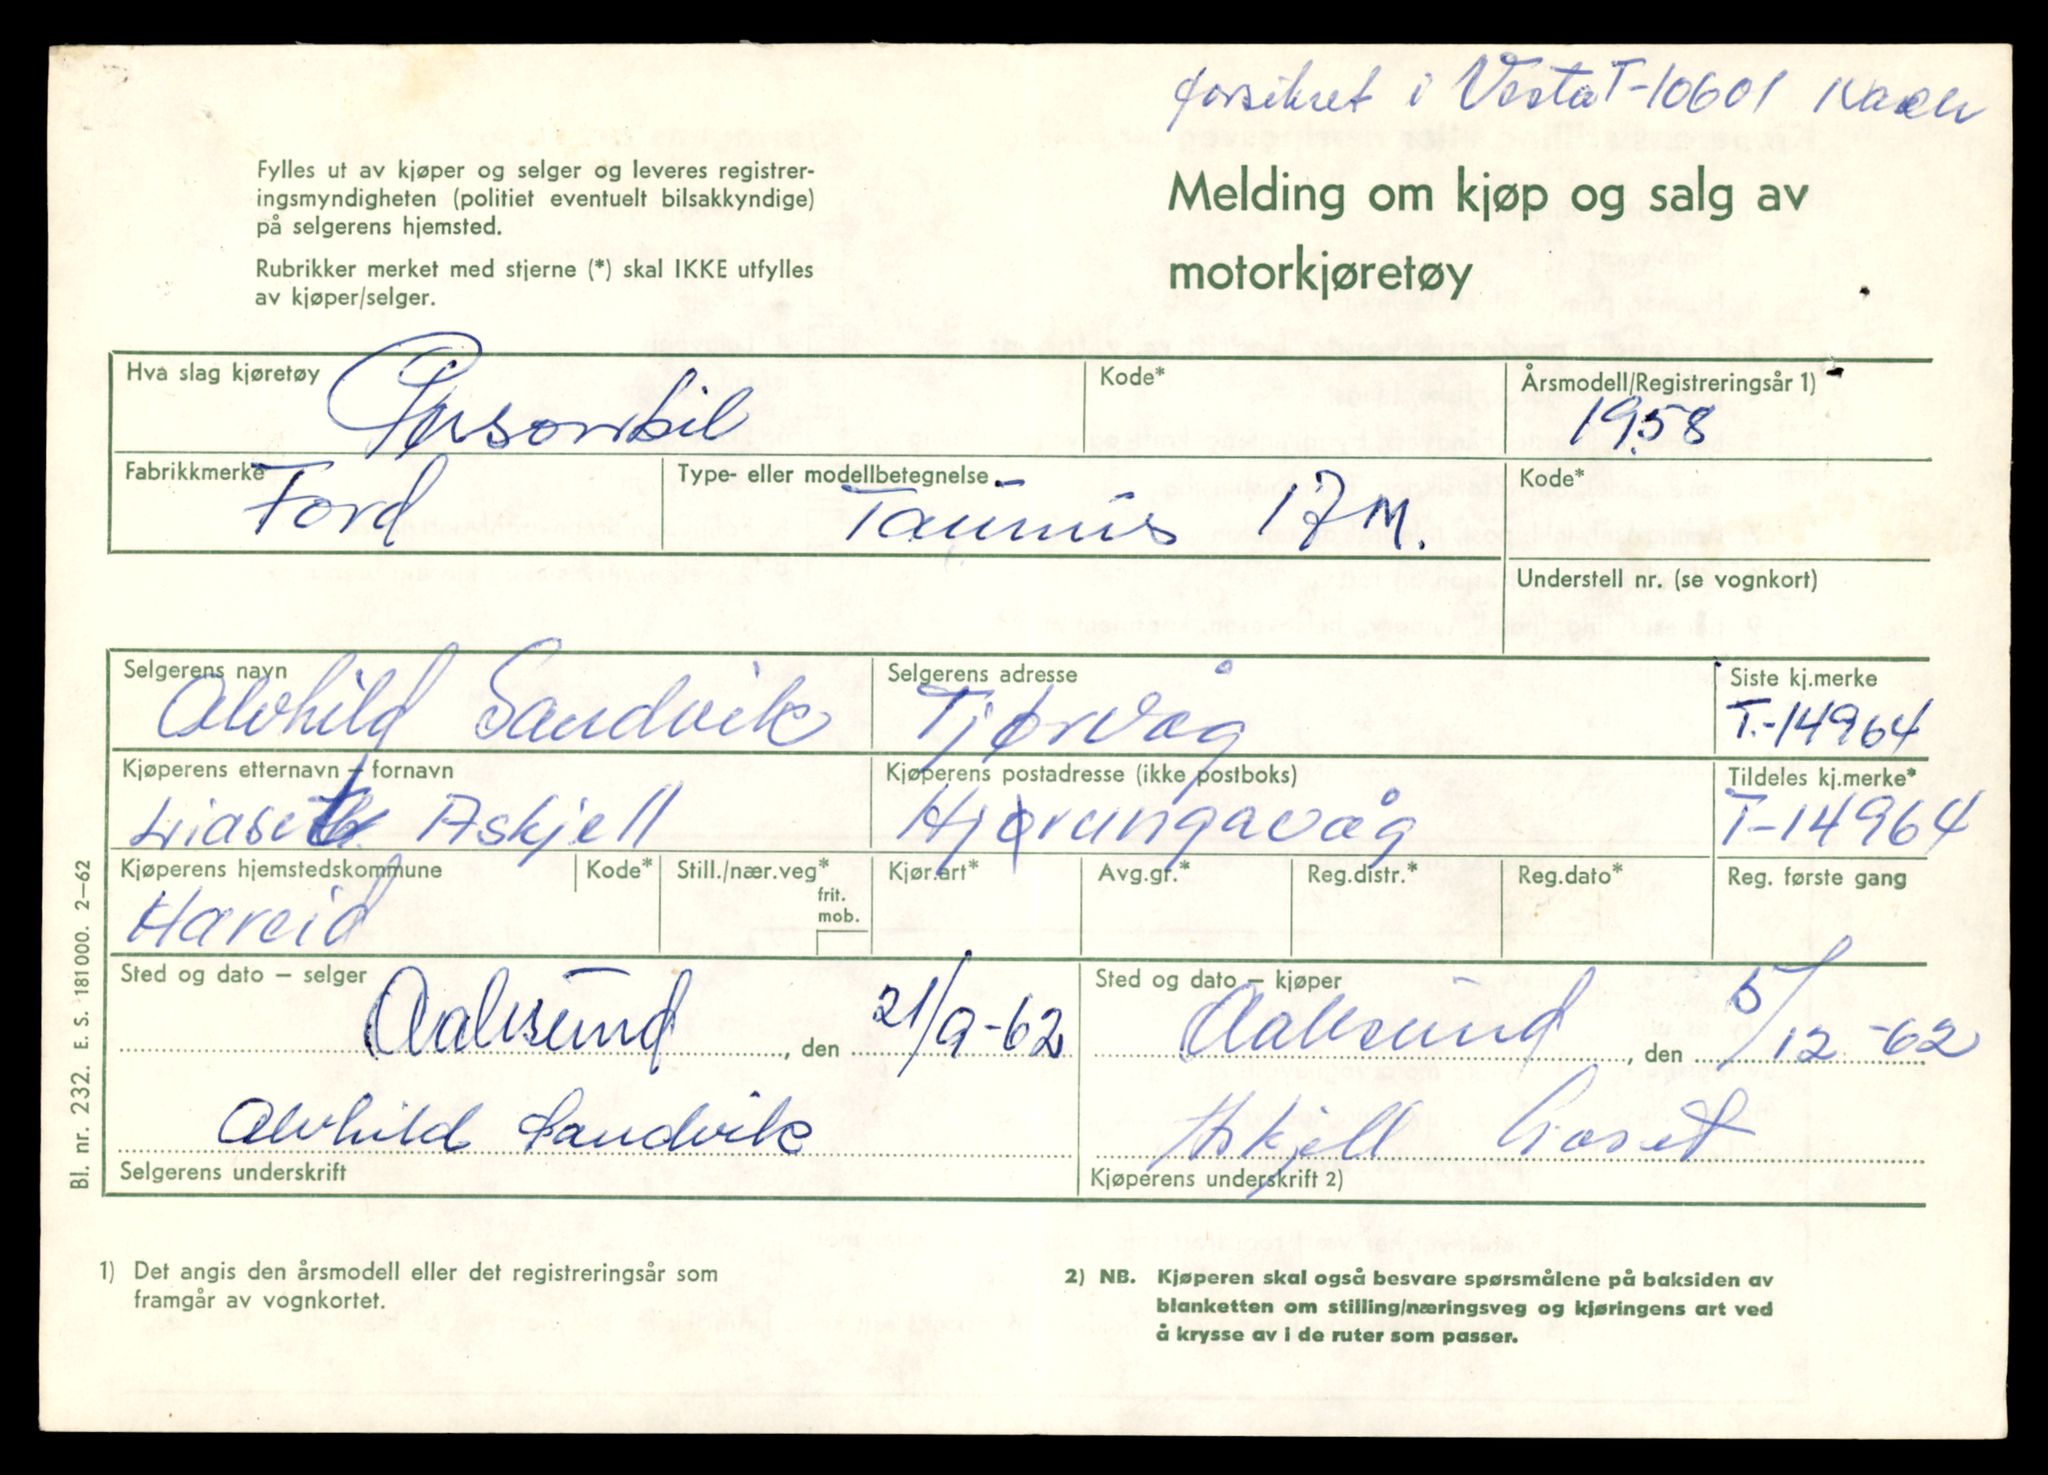 forsikret i Vesta T-10601
Fylles ut av kjøper og selger og leveres registrer-
ingsmyndigheten (politiet eventuelt bilsakkyndige)
på selgerens hjemsted.
Rubrikker merket med stjerne (*) skal IKKE utfylles
av kjøper/selger.
Melding om kjøp og salg av
motorkjøretøy
Hva slag kjøretøy Personbil
Kode*
Årsmodell/Registreringsår 1)
1958
Fabrikkmerke Ford
Type- eller modellbetegnelse
Taunus 17 M.
Kode*
Understell nr. (se vognkort)
Selgerens navn
Alvhild Sandvik
Selgerens adresse
Tjørvåg
Siste kj.merke
T.-14964
Kjøperens etternavn – fornavn
Liaset Askjell
Kjøperens postadresse (ikke postboks)
Hjørungavåg
Tildeles kj.merke*
T-14964
Kjøperens hjemstedskommune
Hareid
Kode*
Still./nær.veg*
frit.
mob.
Kjør.art*
Avg.gr.*
Reg.distr.*
Reg.dato*
Reg. første gang
Sted og dato – selger
Aalesund, den 21/9-62
Alvhild Sandvik
Selgerens underskrift
Sted og dato – kjøper
Aalesund, den 5/12-62
Askjell Liaset
Kjøperens underskrift 2)
Bl. nr. 232. E. S. 181000. 2–62
1) Det angis den årsmodell eller det registreringsår som
framgår av vognkortet.
2) NB. Kjøperen skal også besvare spørsmålene på baksiden av
blanketten om stilling/næringsveg og kjøringens art ved
å krysse av i de ruter som passer.